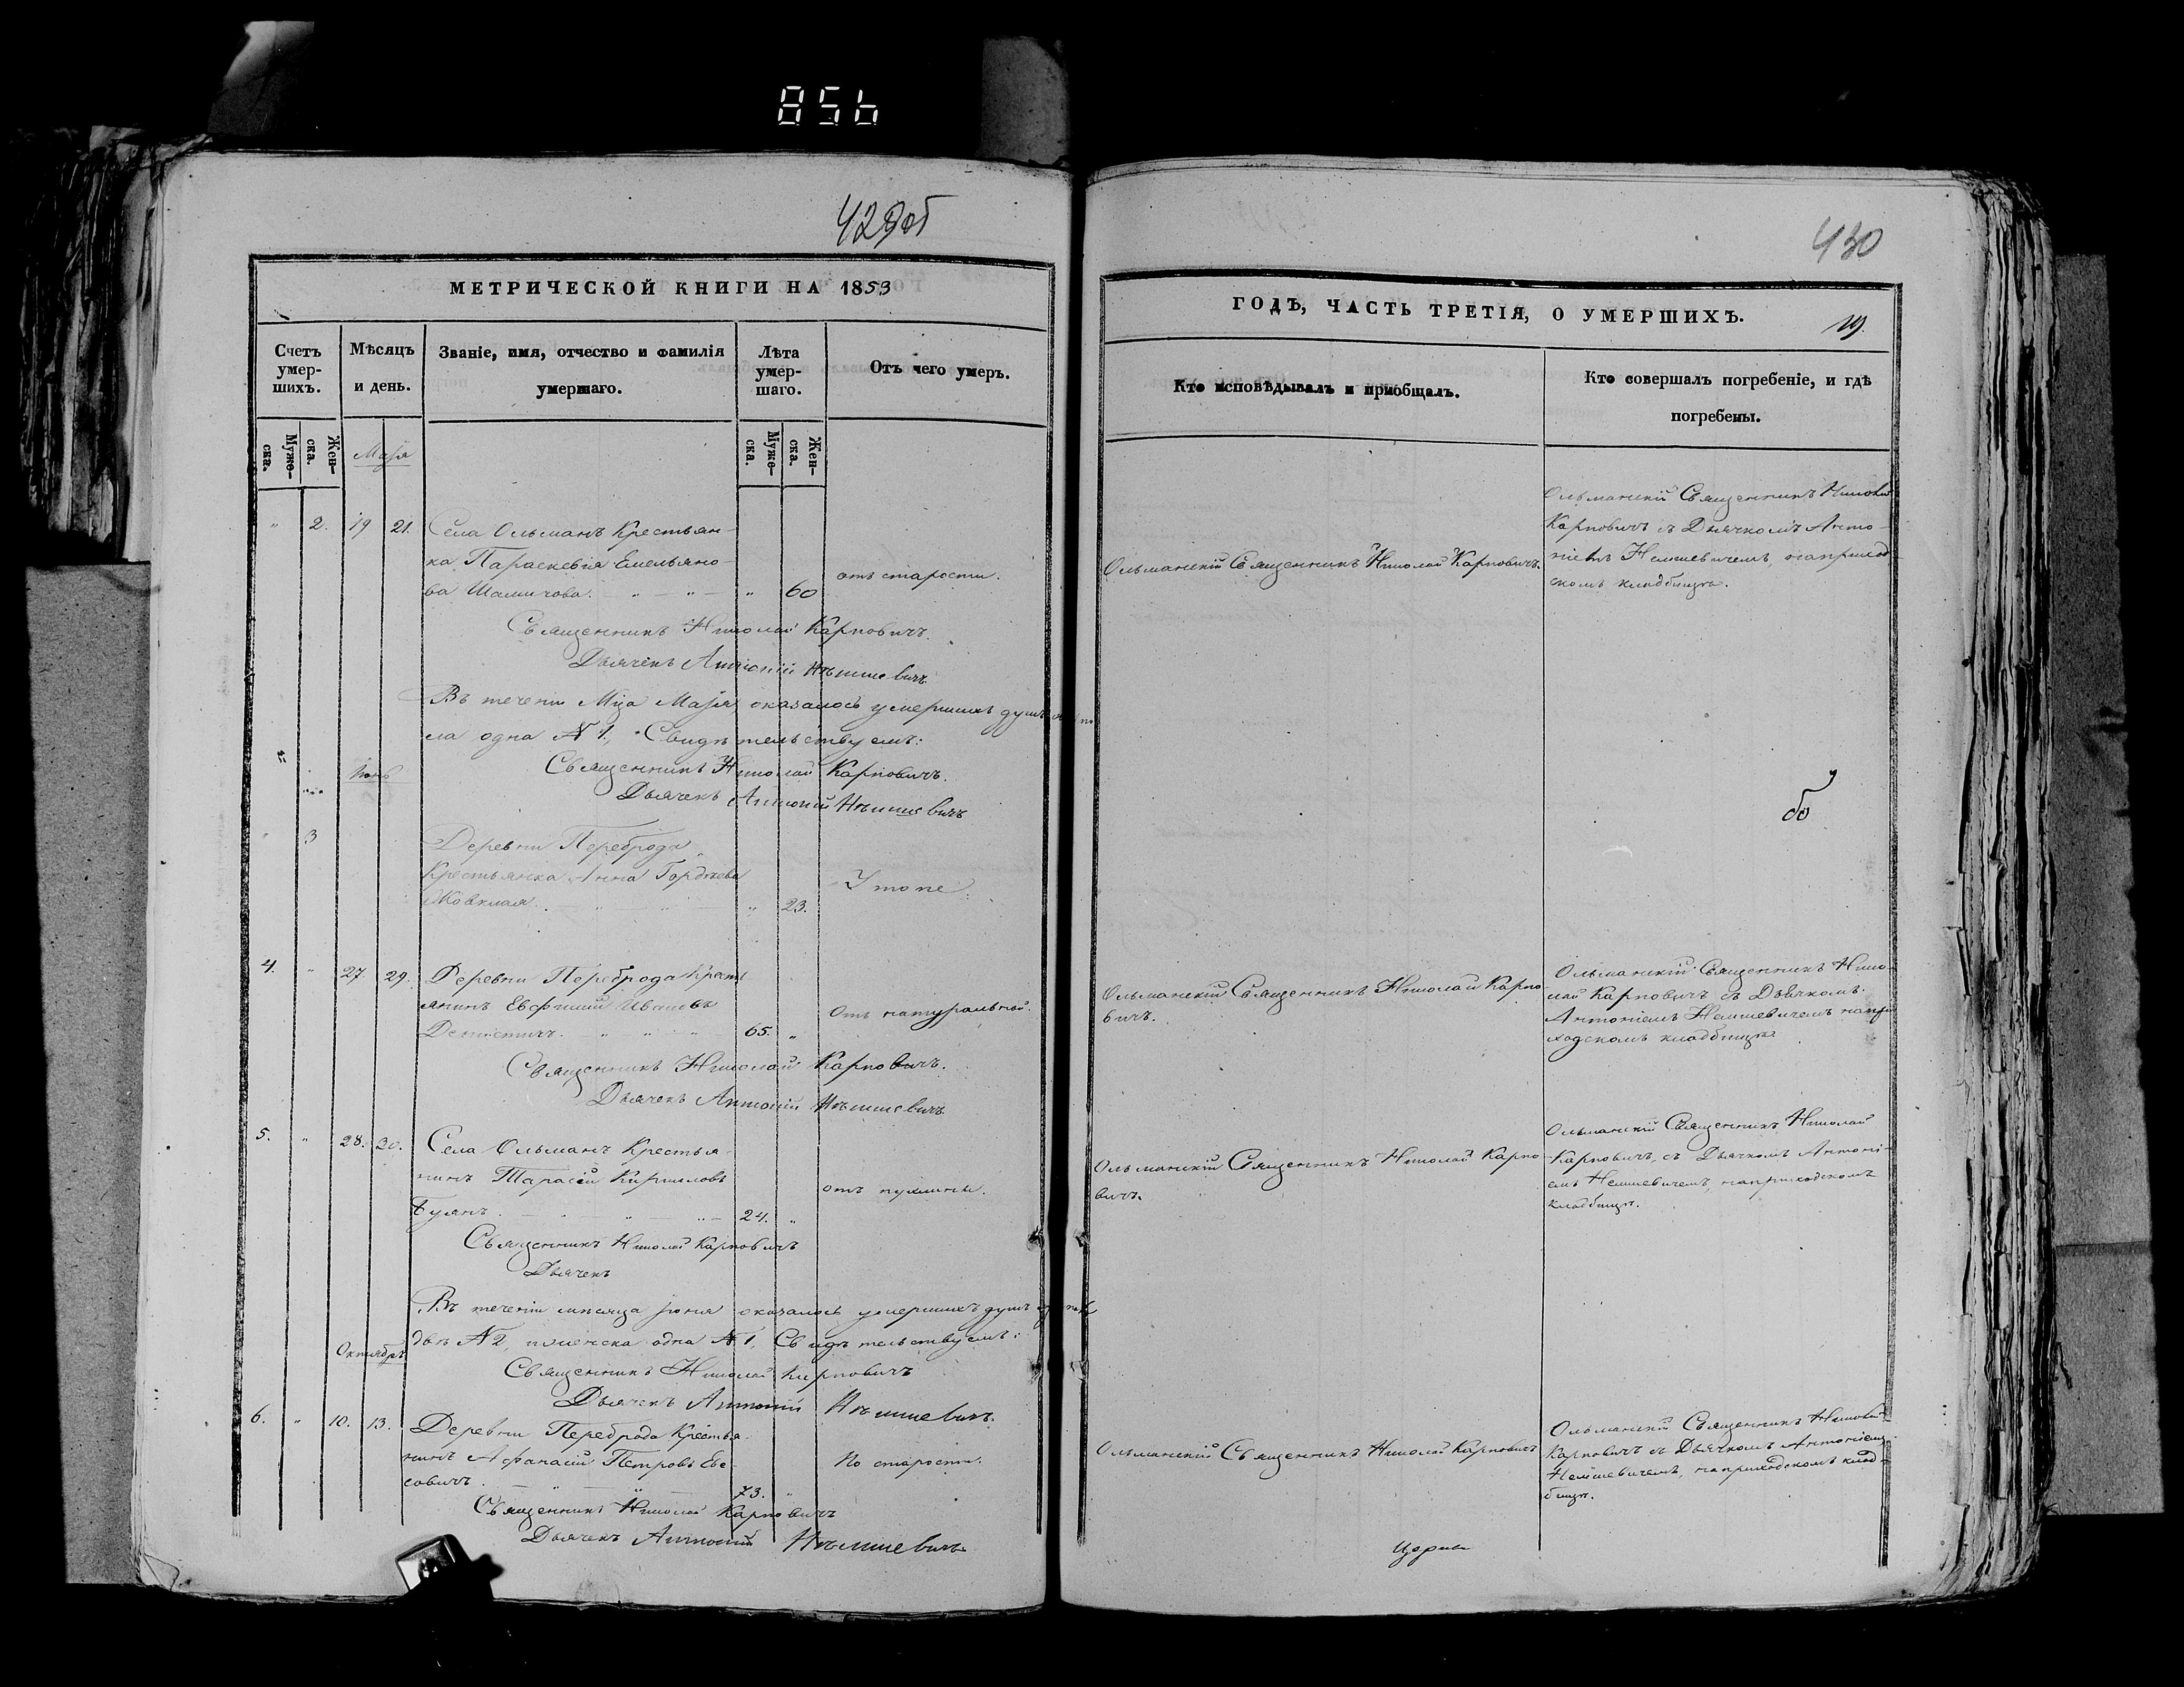 856
429об
МЕТРИЧЕСКОЙ КНИГИ НА 1853
Счетъ умер-шихъ.
Мѣсяцъ и день.
Званіе, имя, отчество и фамилія умершаго.
Лѣта умер-шаго.
Отъ чего умеръ.
Муже-ска.
Жен-ска.
Маія
Муже-ска.
Жен-ска.
" 2. 19 21. Села Ольманъ Крестьян-
ка Параскевія Емельяно-
ва Шаличова. " 60 отъ старости.
Священникъ Николай Карповичъ.
Дьячекъ Антоній Нѣмшевичъ
Въ теченіи Мца Маія оказалось умершихъ душъ
ла одна № 1, Свидѣтельствуемъ:
Священникъ Николай Карповичъ.
Дьячекъ Антоній Нѣмшевичъ
Іюнь
" 3 Деревни Переброда
Крестьянка Анна Гордѣева
" 23.
4. " 27 29. Деревни Переброда Кресть
янинъ Евфимій Ивановъ
65. " Отъ натуральной.
Священникъ Николай Карповичъ.
Дьячекъ Антоній Нѣмшевичъ
5. " 28. 30. Села Ольманъ Крестья-
нинъ Тарасій Кириловъ
Буянъ. 24. "
Священникъ Николай Карповичъ
Дьячекъ
Въ теченіи мѣсяца Іюня оказалось умершихъ душъ
двѣ № 2, и женска одна № 1, Свидѣтельствуемъ:
Священникъ Николай Карповичъ
Дьячекъ Антоній Нѣмшевичъ.
Октябрь
6. " 10. 13. Деревни Переброда Крестья-
нинъ Афанасій Петровъ Евс-
совичъ. 73. " По старости.
Священникъ Николай Карповичъ
Дьячекъ Антоній Нѣмшевичъ
430
ГОДЪ, ЧАСТЬ ТРЕТІЯ, О УМЕРШИХЪ.
19.
Кто исповѣдывалъ и пріобщалъ.
Кто совершалъ погребеніе, и гдѣ погребены.
Ольманскій Священникъ Николай Карповичъ.
Ольманскій Священникъ Николай
Карповичъ съ Дьячкомъ Анто-
ніемъ Немшевичемъ, наприход-
скомъ кладбищѣ.
Ольманскій Священникъ Николай Карпо
вичъ.
Ольманскій Священникъ Нико-
лай Карповичъ съ Дьячкомъ
Антоніемъ Немшевичемъ напри
ходскомъ кладбищѣ
Ольманскій Священникъ Николай Карпо-
вичъ.
Ольманскій Священникъ Николай
Карповичъ, съ Дьячкомъ Антоні-
емъ Немшевичемъ, наприходскомъ
кладбищѣ.
Ольманскій Священникъ Николай Карповичъ
Ольманскій Священникъ Николай
Карповичъ съ Дьячкомъ Антоніемъ
Немшевичемъ, наприходскомъ клад-
бищѣ.